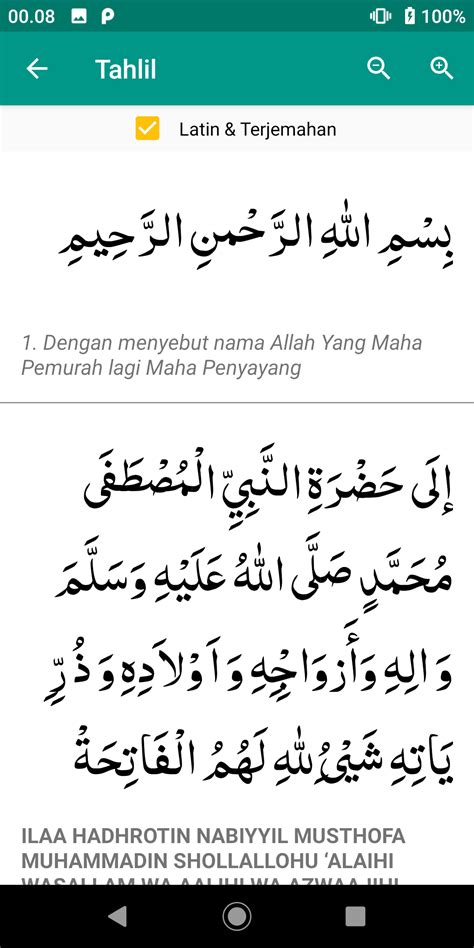 00.08 100%
Tahlil
Latin & Terjemahan
بِسْمِ اللهِ الرَّحْمنِ الرَّحِيمِ
1. Dengan menyebut nama Allah Yang Maha
Pemurah lagi Maha Penyayang
إِلَى حَضْرَةِ النَّبِيِّ الْمُصْطَفَى
مُحَمَّدٍ صَلَّى اللهُ عَلَيْهِ وَسَلَّمَ
وَالِهِ وَأَزوَاجِهِ وَاَوْلَادِهِ وَذُرِّ
يَاتِهِ شَيْئُ لِلهِ لَهُمُ الْفَاتِحَةْ
ILAA HADHROTIN NABIYYIL MUSTHOFA
MUHAMMADIN SHOLLALLOHU ‘ALAIHI
WASALLAM WA AALIHI WA AZWAAJIHI